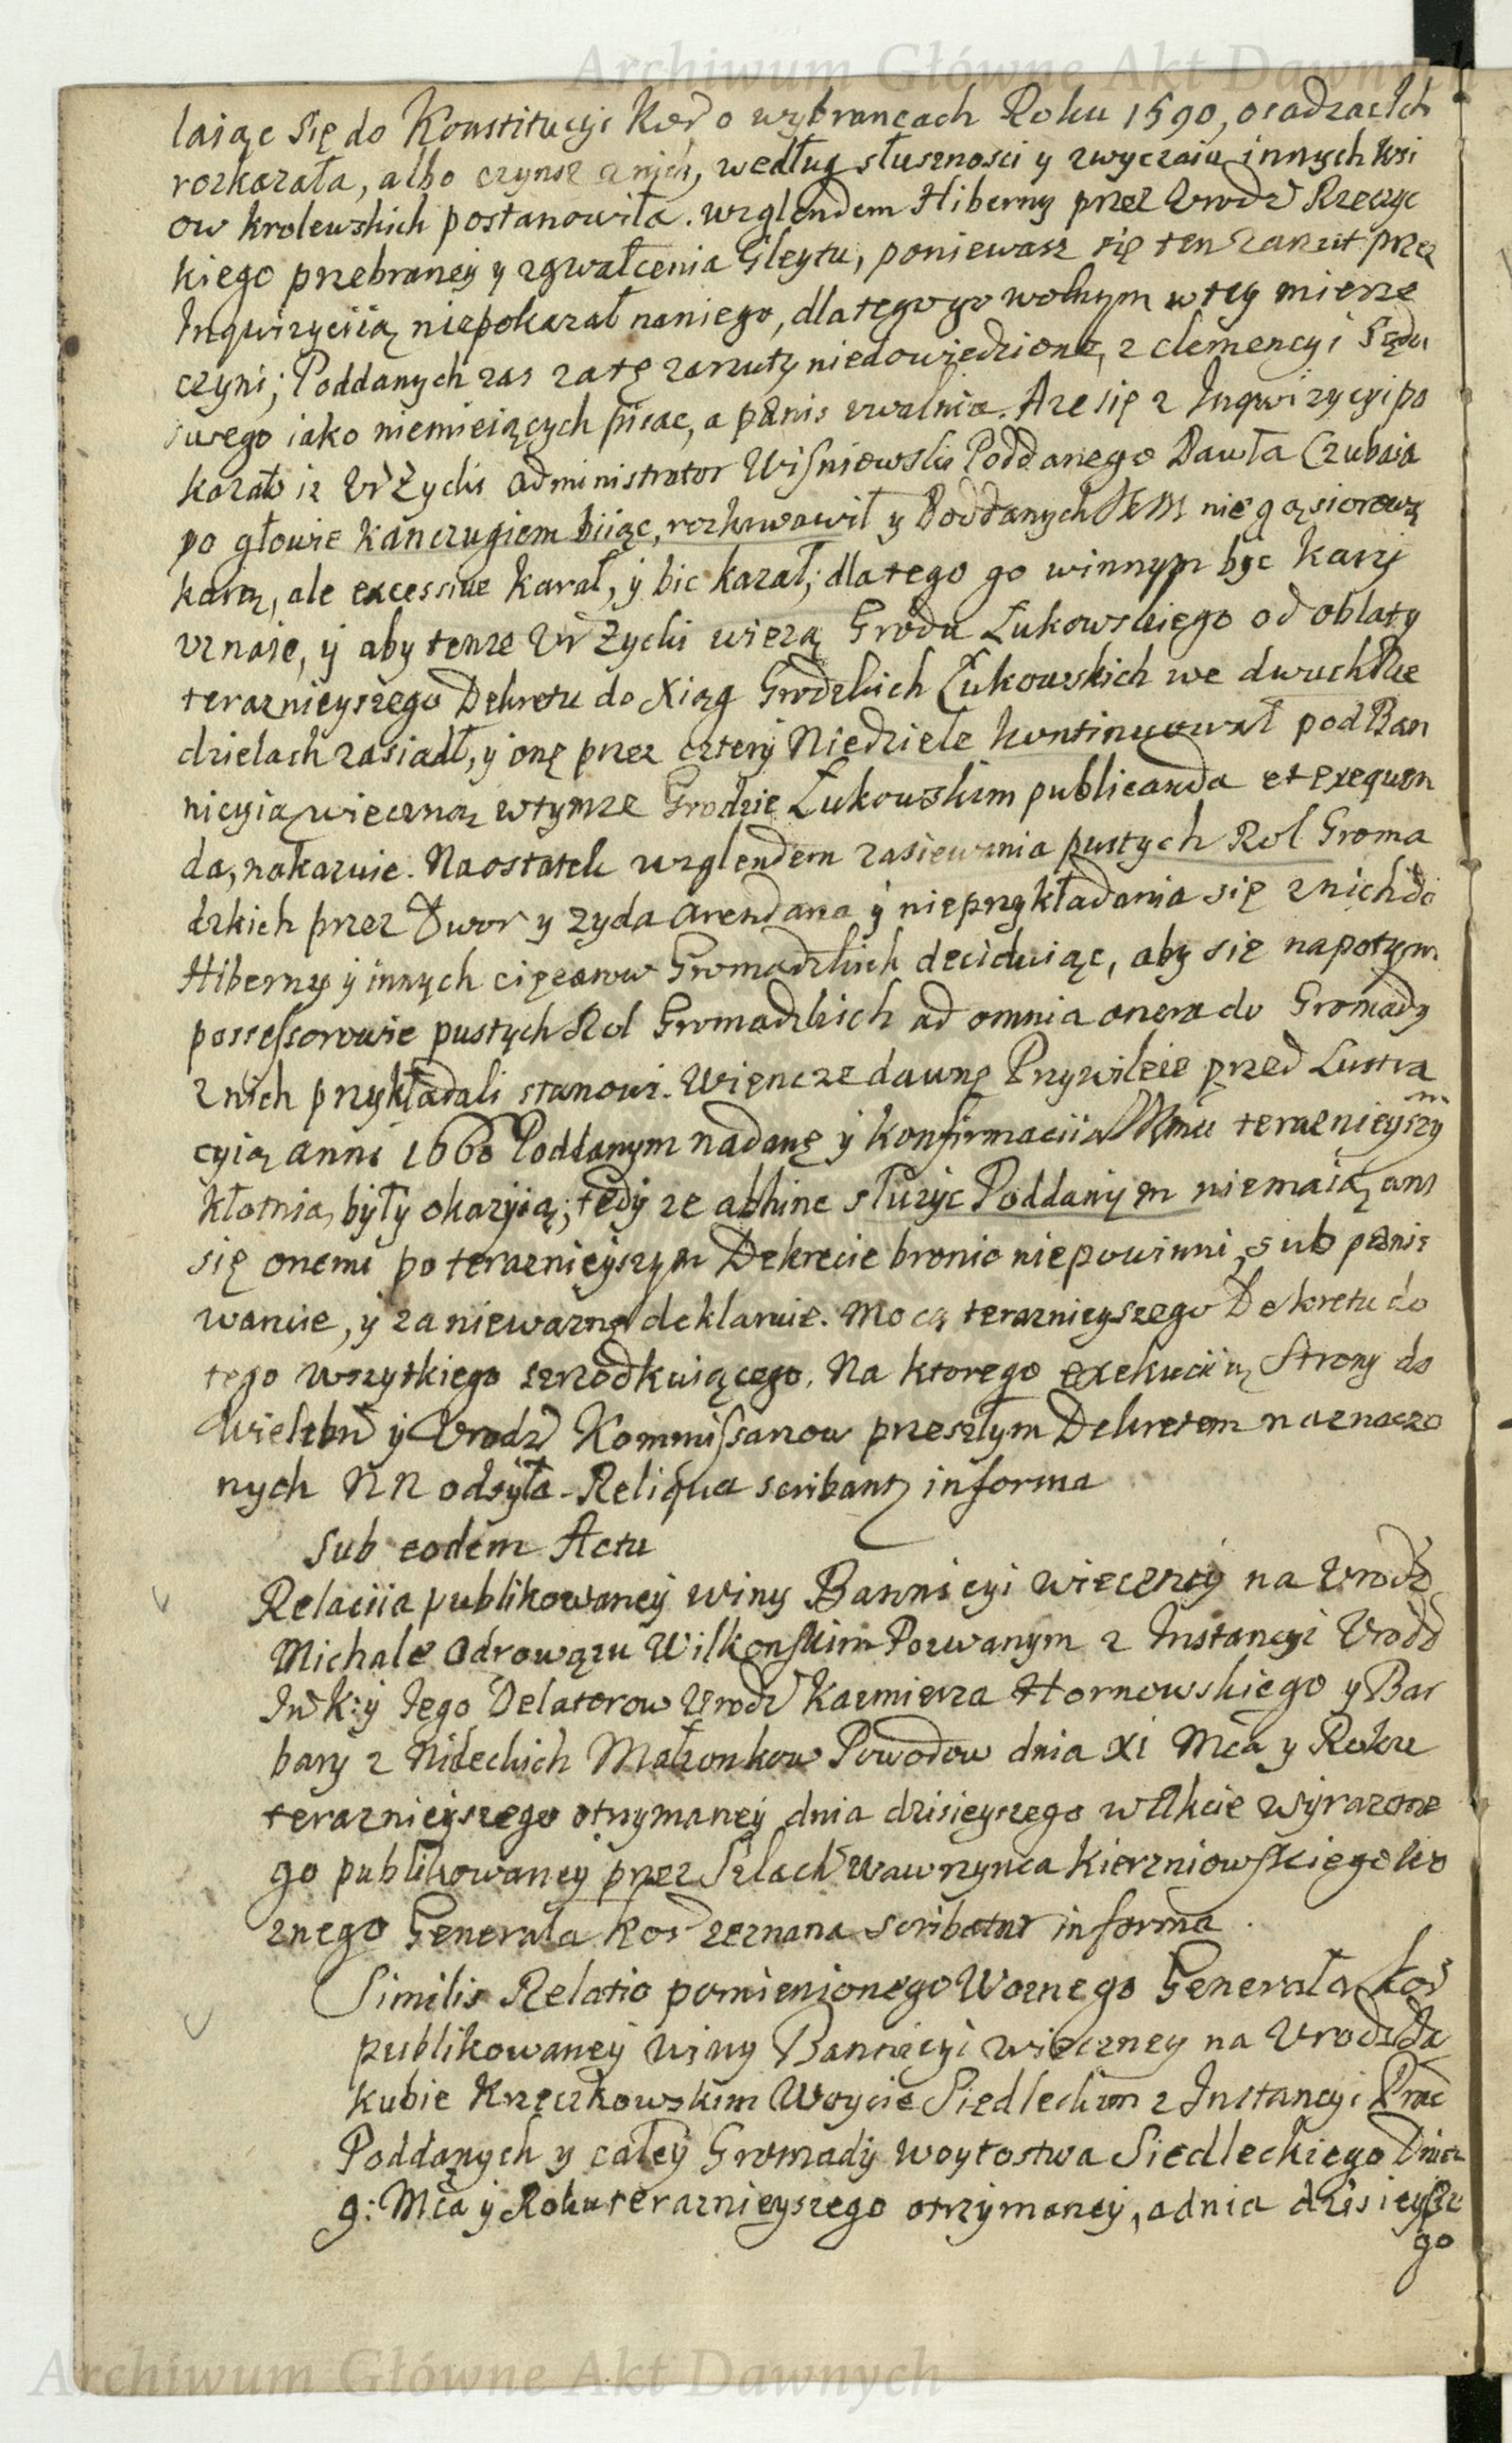 Archiwum Główne Akt Dawnych
laiąc się do Konstitucyi Kor o wybrancach Roku 1590, osadzac ich
rozkazała, albo czynsz z nich, według słusznosci y zwyczaiu innych Wsi
ow krolewskich postanowiła. Wzglendem Hiberny przez Vrodz Rzeczyc
kiego przebraney y zgwałcenia Gleytu, poniewasz się ten zarzut przez
Inqwizyciią niepokazał naniego, dla tego go wolnym w tey mierze
czyni; Poddanych zas za tę zarzuty niedowiedzione, z clemencyi Sądu
swego iako nieumieiących pisac, a pænis uwalnia. A ze się z Inqwizycyi po
kazało iz Vr Zycki administrator Wiśniewski Poddanego Pawła Czubaia
po głowie kanczugiem biiąc, rozkrwawił y Poddanych nie gąsiorową
karą, ale excessive karał, y bic kazał; dlatego go winnym byc kary
vznaie, y aby tenze Vr Zycki wiezą Grodu Łukowskiego od oblaty
teraznieyszego Dekretu do Xiąg Grodzkich Łukowskich we dwuch Nie
dzielach zasiadł, y onę przez cztery Niedziele kontinuował pod Ban
nicyią wieczną w tymze Grodzie Łukowskim publicanda et exequen
da, nakazuie. Na ostatek wzglendem zasiewania pustych Rol Groma
dzkich przez Dwor y zyda Arendarza y nieprzykładania się z nich do
Hiberny y innych cięzarow Gromadzkich deciduiąc, aby się napotym
possessorowie pustych Rol Gromadzkich ad omnia onera do Gromady
z nich przykładali stanowi. Więncze dawnę Przywileie przed Lustra
cyią anni 1660 Poddanym nadanę y konfirmaciia teraznieyszy
kłotnią były okazyią; tedy ze abhinc słuzyc Poddanym niemaią ani
się onemi po teraznieyszym Dekrecie bronic niepowinni, sub pænis
waruie, y za niewazne deklaruie. Mocą teraznieyszego Dekretu do
tego wszytkiego szrodkuiącego. Na ktorego exekuciią Strony do
Wielebn y Vrodz Kommissarzow przeszłym Dekretem naznaczo
nych NN odsyła. Reliqua scribantz in forma
Sub eodem Actu
Relaciia publikowaney winy Bannicyi wieczney na Vrodz
Michale Odrowązu Wilkonskim Pozwanym z Instancyi Vrodz
Ins k: y Iego Delatorow Vrodz Kazmierza Hornowskiego y Bar
bary z Nideckich Małzonkow Powodow dnia XI Mca y Roku
teraznieyszego otrzymaney dnia dzisieyszego w Akcie wyrazone
go publikowaney przez Szlach Wawrzynca Kierzniowskiego Wo
znego Generała Kor zeznana scribatur in forma.
Similis Relatio pomienionego Woznego Generała Kor
publikowaney winy Bannicyi wieczney na Vrodz Ia
kubie Krzęczkowskim Woycie Siedleckim z Instancyi Prac
Poddanych y całey Gromady Woytostwa Siedleckiego Dnia
9: Mca y Roku teraznieyszego otrzymaney, a dnia dzisieysze
go
Archiwum Główne Akt Dawnych